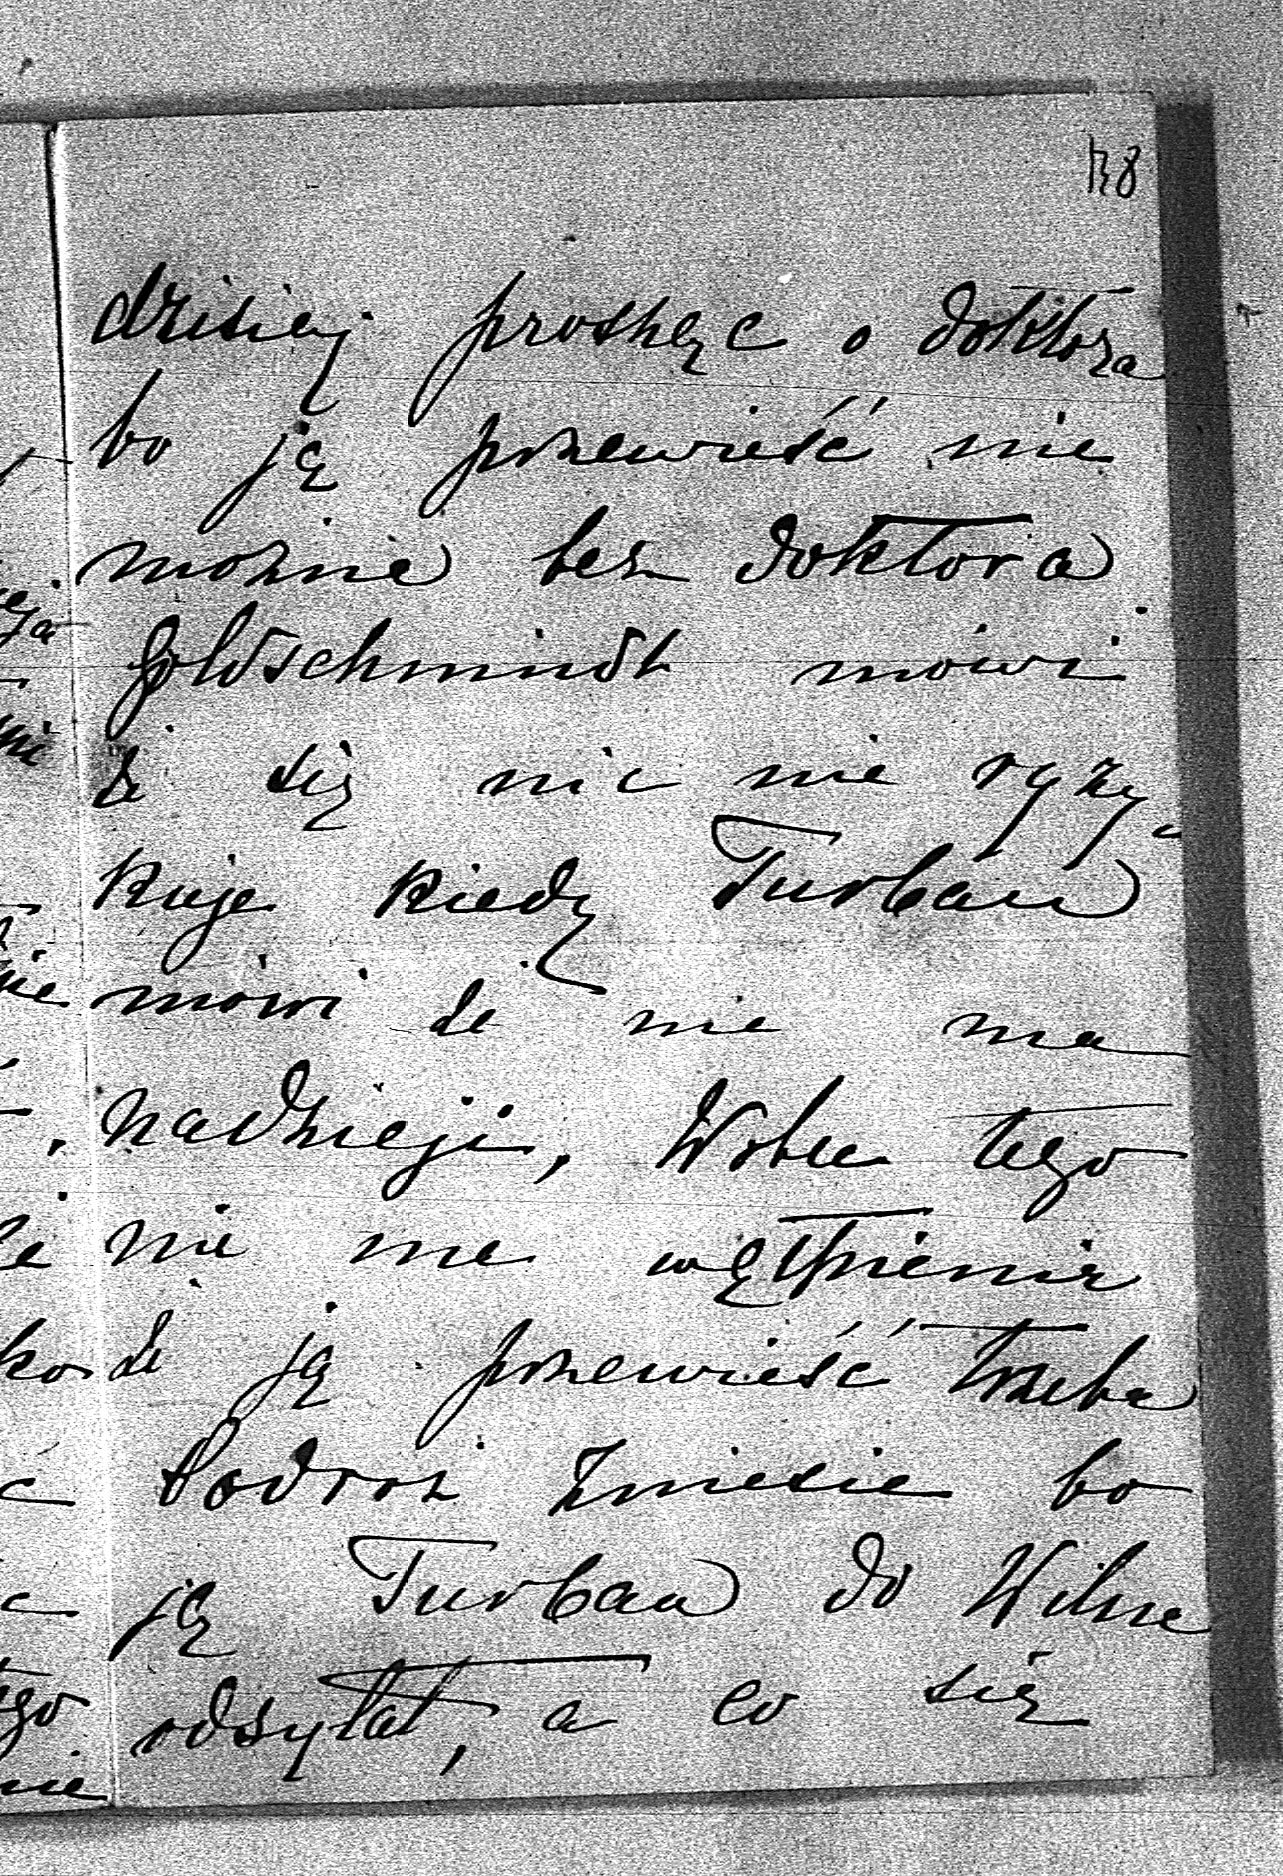 138
dzisiej prosząc o doktora
bo ją przewieść nie
można bez doktora
Goldschmidt mówi
że się nic nie ryzy-
kuje kiedy Turban
mówi że nie ma
nadzieji, Wobec tego
nie ma wątpienia
że ją przewieść trzeba
Podroż zniesie bo
ją Turban do Wilna
odsyłał, a co się